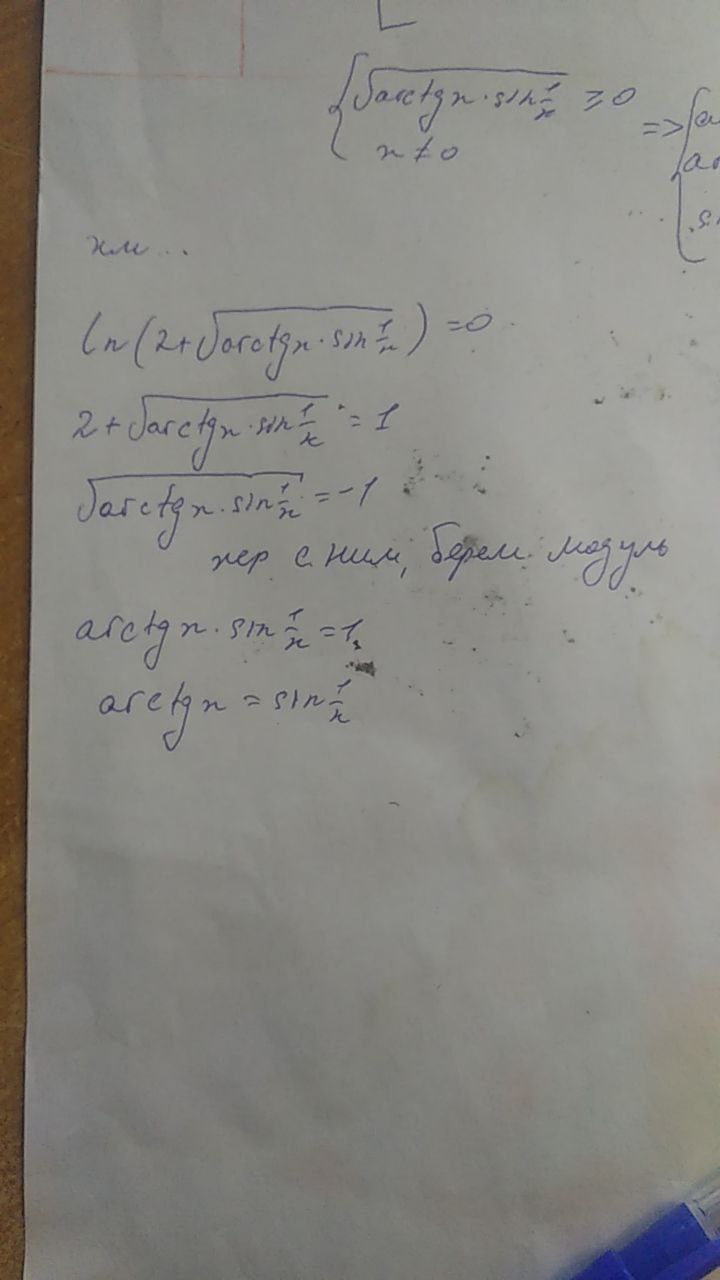 √(arctg x · sin 1/x) ≥ 0
x ≠ 0
=>
хм...
ln(2+√(arctg x · sin 1/x)) = 0
2+√(arctg x · sin 1/x) = 1
√(arctg x · sin 1/x) = -1
хер с ним, берем модуль
arctg x · sin 1/x = 1
arctg x = sin 1/x